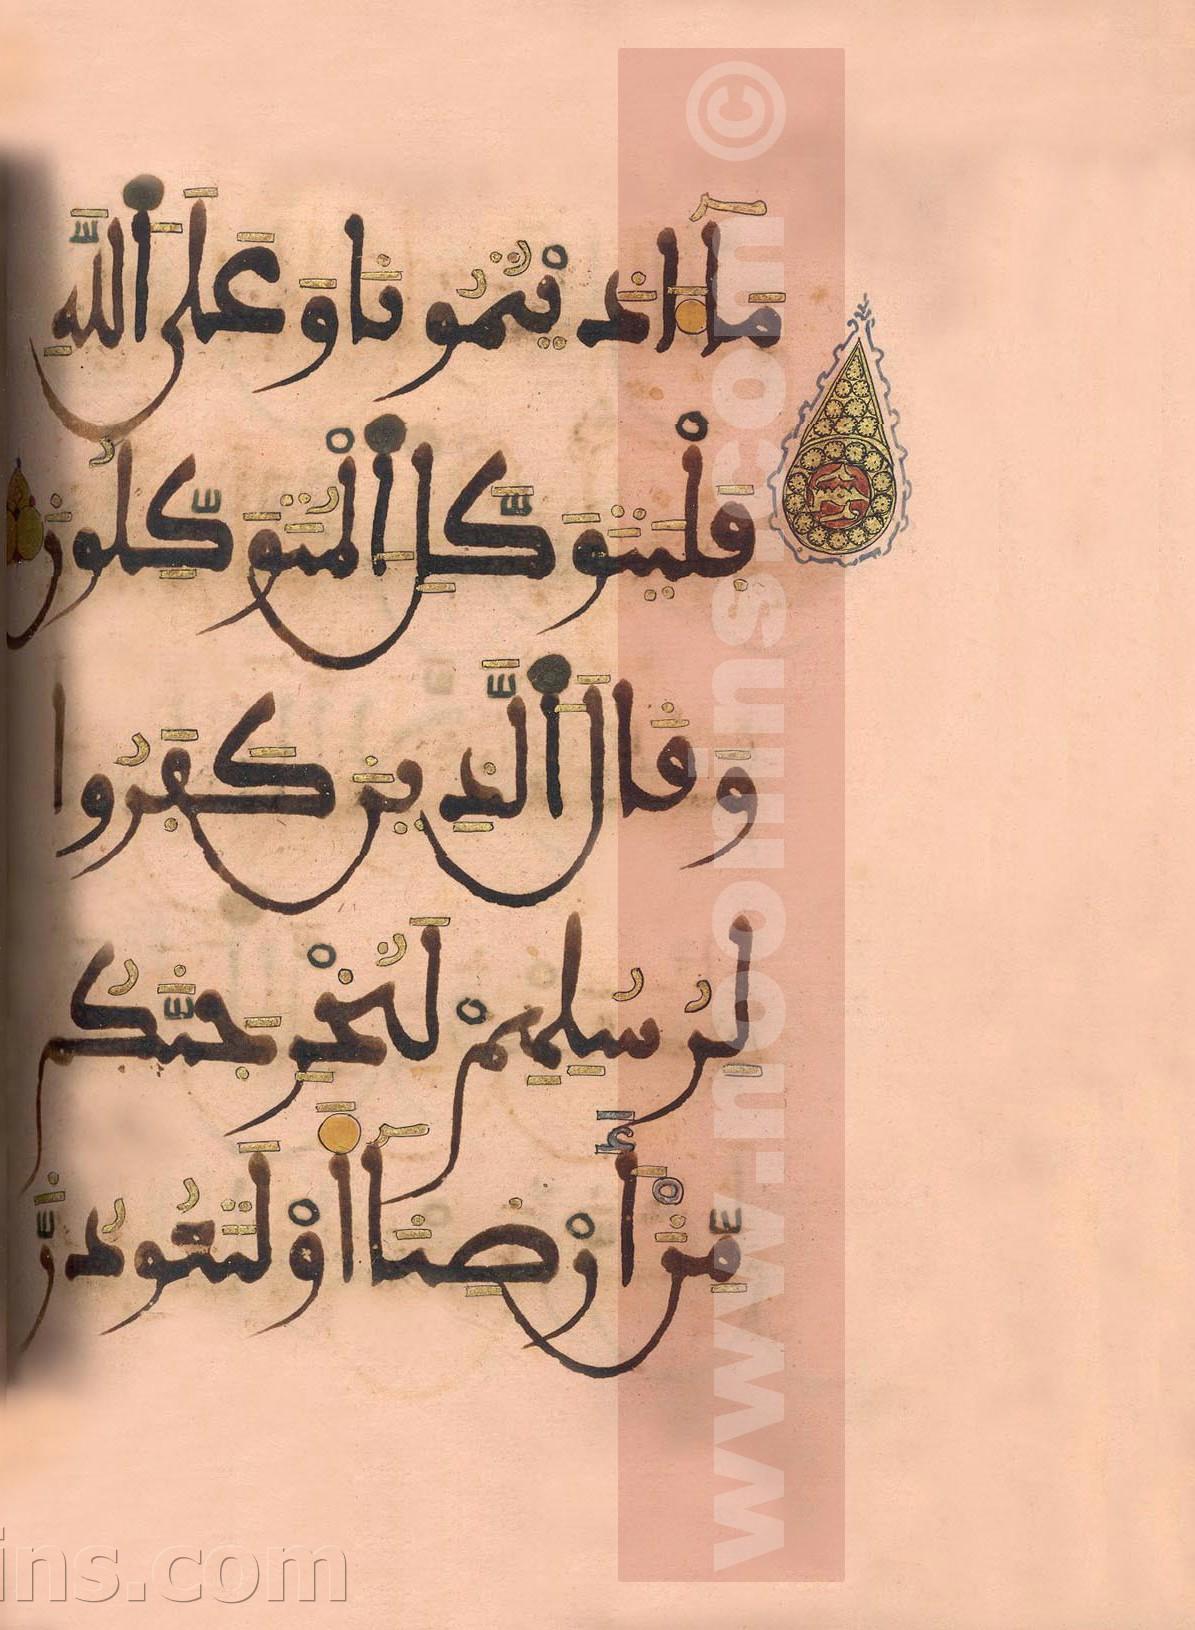 مَآ ءَاذَيْتُمُونَا وَعَلَى ٱللَّهِ
فَلْيَتَوَكَّلِ ٱلْمُتَوَكِّلُونَ
وَقَالَ ٱلَّذِينَ كَفَرُوا
لِرُسُلِهِمْ لَنُخْرِجَنَّكُم
مِّنْ أَرْضِنَآ أَوْ لَتَعُودُنَّ
www.noorinsns.com ©
ins.com